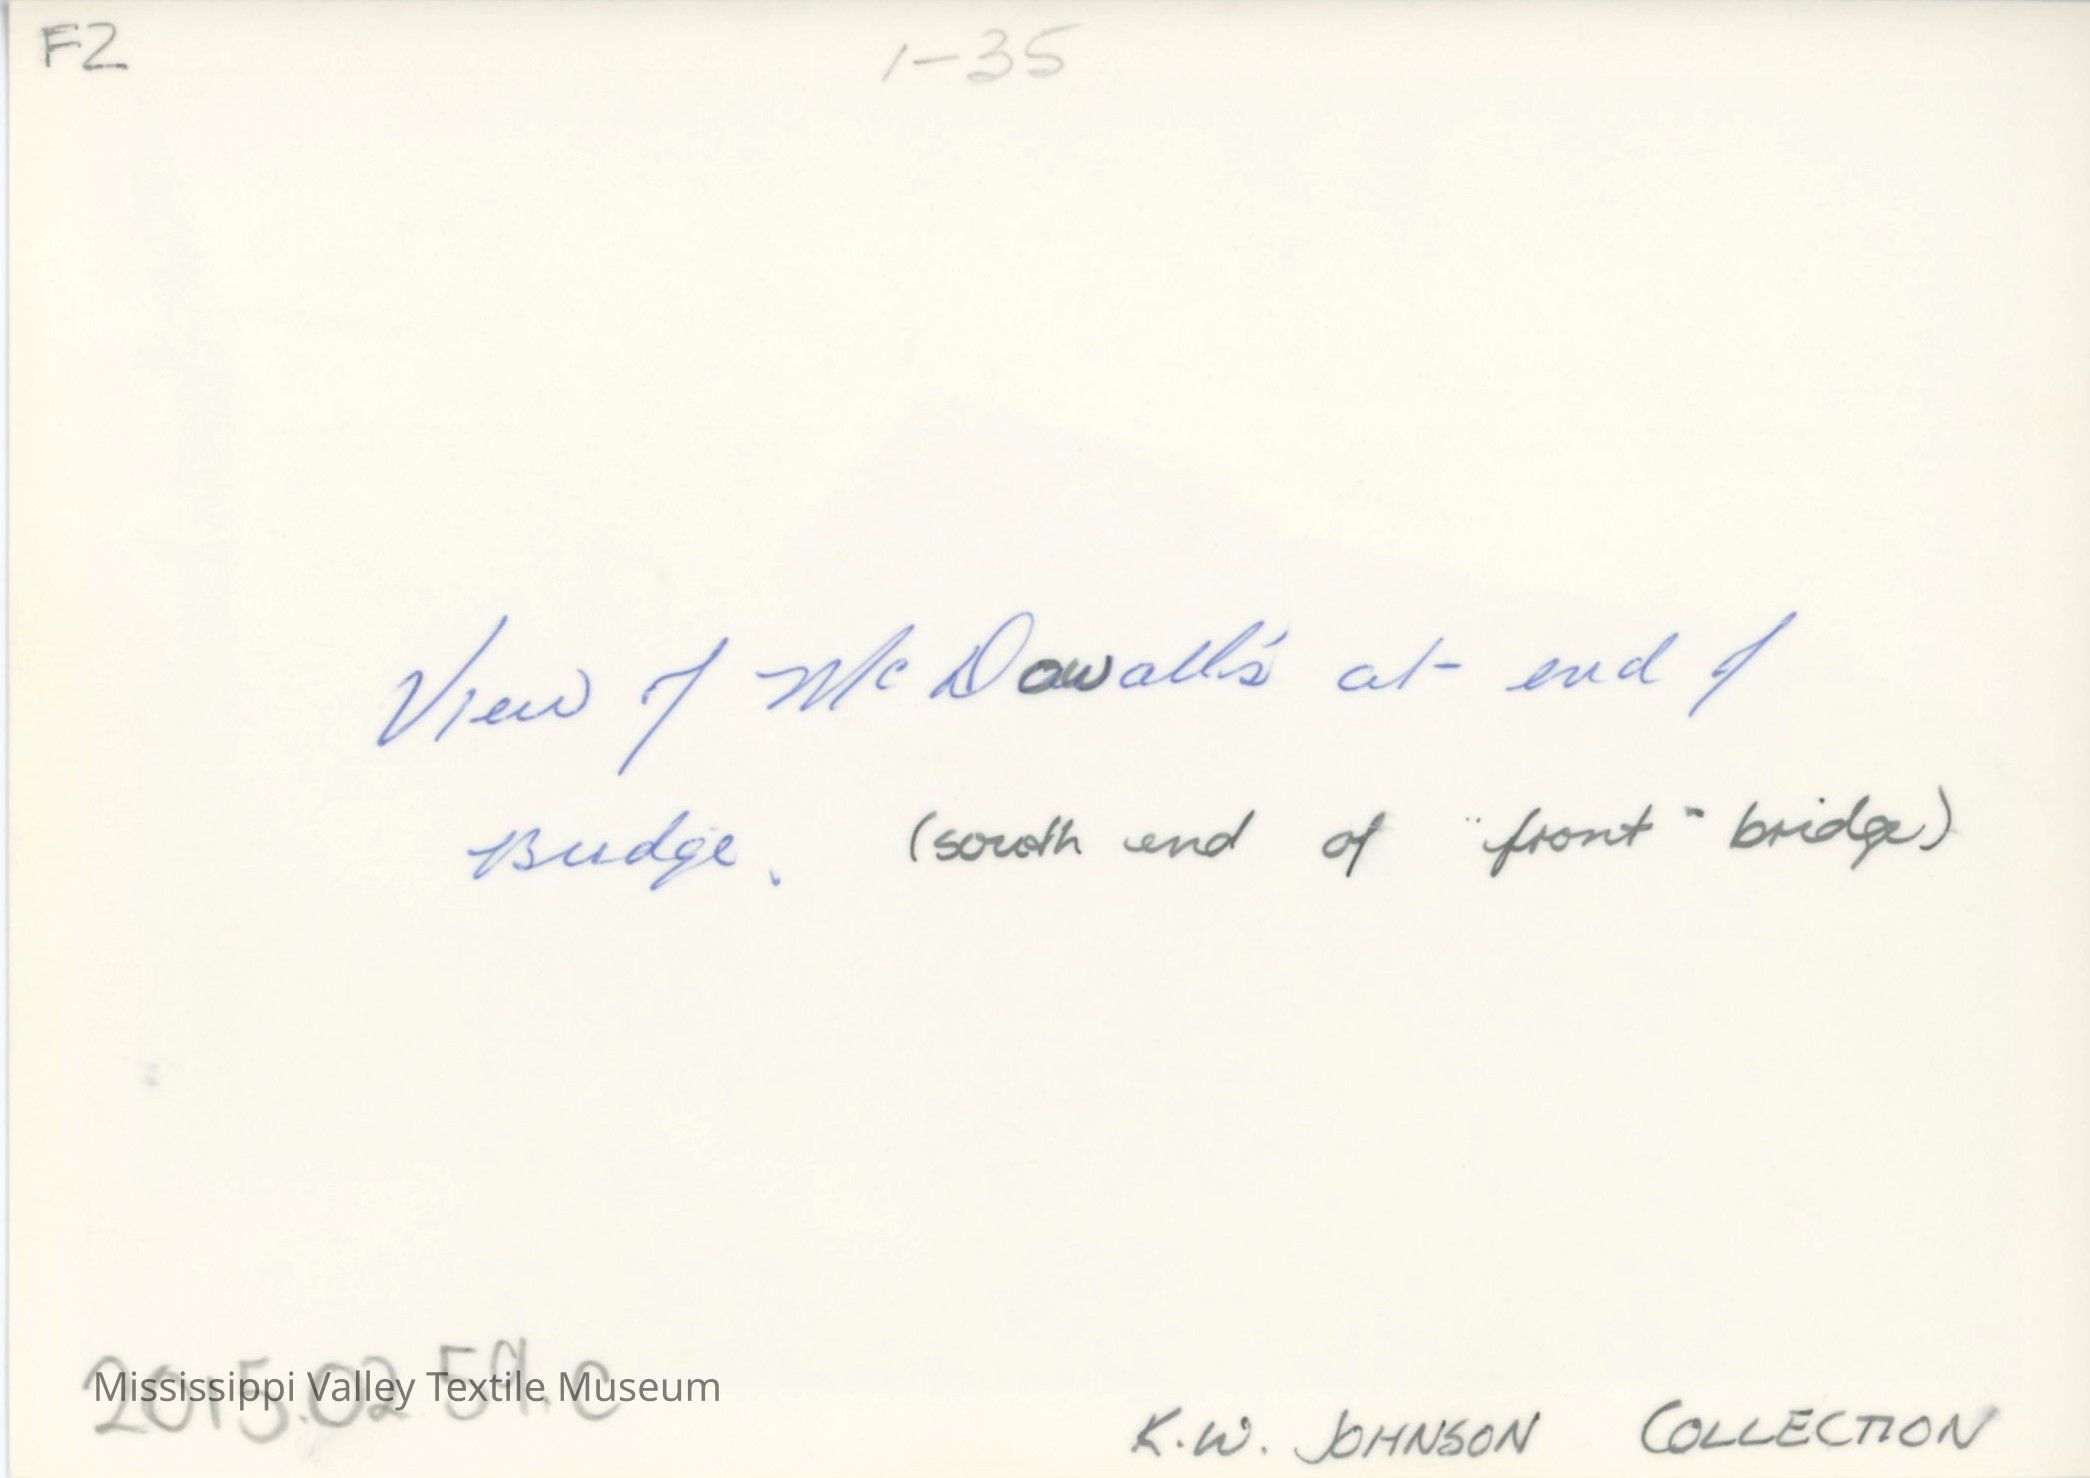 F2
1-35
View of McDowall's at end of
Bridge. (south end of "front" bridge)
Mississippi Valley Textile Museum
K.W. JOHNSON COLLECTION